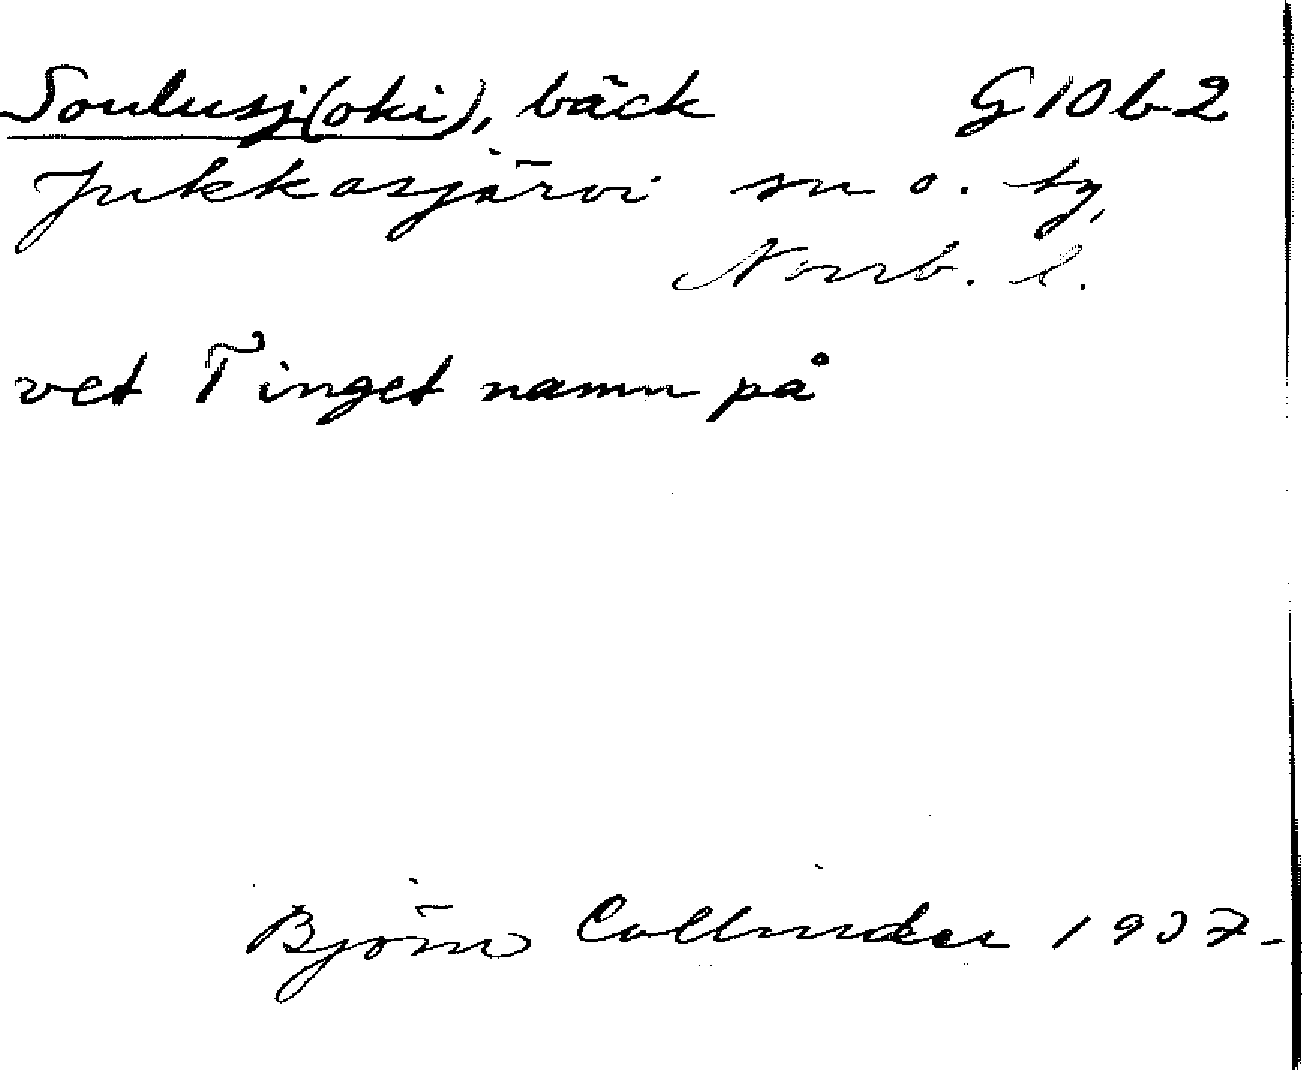 Soulusj(oki), bäck G10b2
Jukkasjärvi sn o. tg,
Norrb. l.
vet T inget namn på
Björn Collinder 1937-